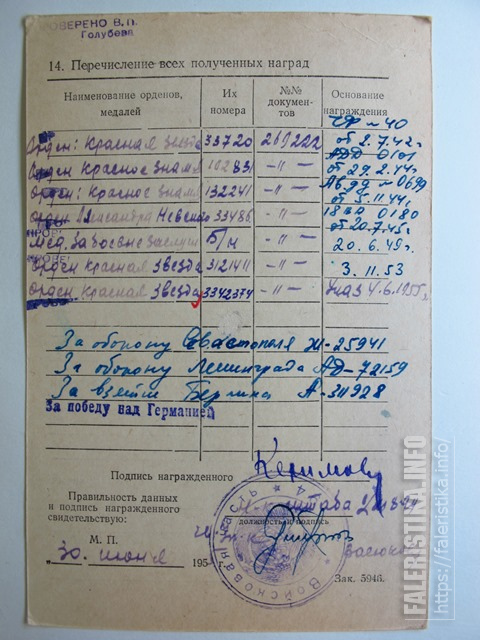 ПРОВЕРЕНО В.П.
Голубева
14. Перечисление всех полученных наград
Наименование орденов, медалей Их номера №№ документов Основание награждения
ЧФ № 40
Орден: Красная звезда 33720 269222 от 2.7.42г.
АДД 0101
Орден Красное Знамя 102831 -"- от 29.2.44г.
Орден: Красное знамя 132241 -"- № 0699
от 5.11.44г.
Орден Александра Невского 33486 -"- 18 ВА 0180
от 20.7.45г.
Мед. За боевые заслуги б/н -"- 20.6.49г.
Орден Красная звезда 3121411 -"- 3.11.53
Орден Красная звезда 3342374 -"- Указ 4.6.1955г.
За оборону Севастополя Ж-25941
За оборону Ленинграда АД-72159
За взятие Берлина А-311928
За победу над Германией
Подпись награжденного
Правильность данных и подпись награжденного свидетельствую:
штаба
должность и подпись
М. П.
30 июня 195
Войсковая часть
Зак. 594б.
FALERISTINA.INFO
https://faleristika.info/